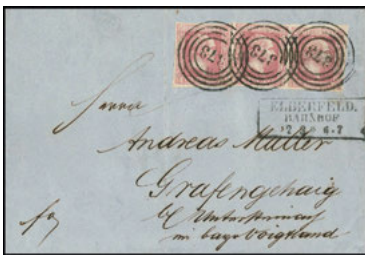 373 373 373
ELBERFELD.
BAHNHOF
Herrn
Andreas Müller
Grafengehaig
b/ Untersteinach
im bayr Voigtland